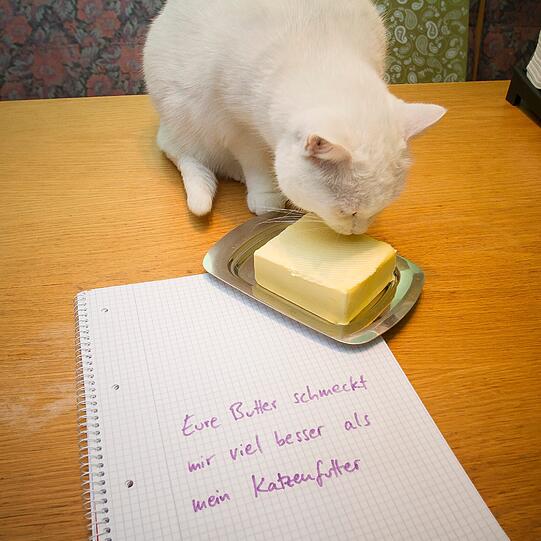 Eure Butter schmeckt
mir viel besser als
mein Katzenfutter